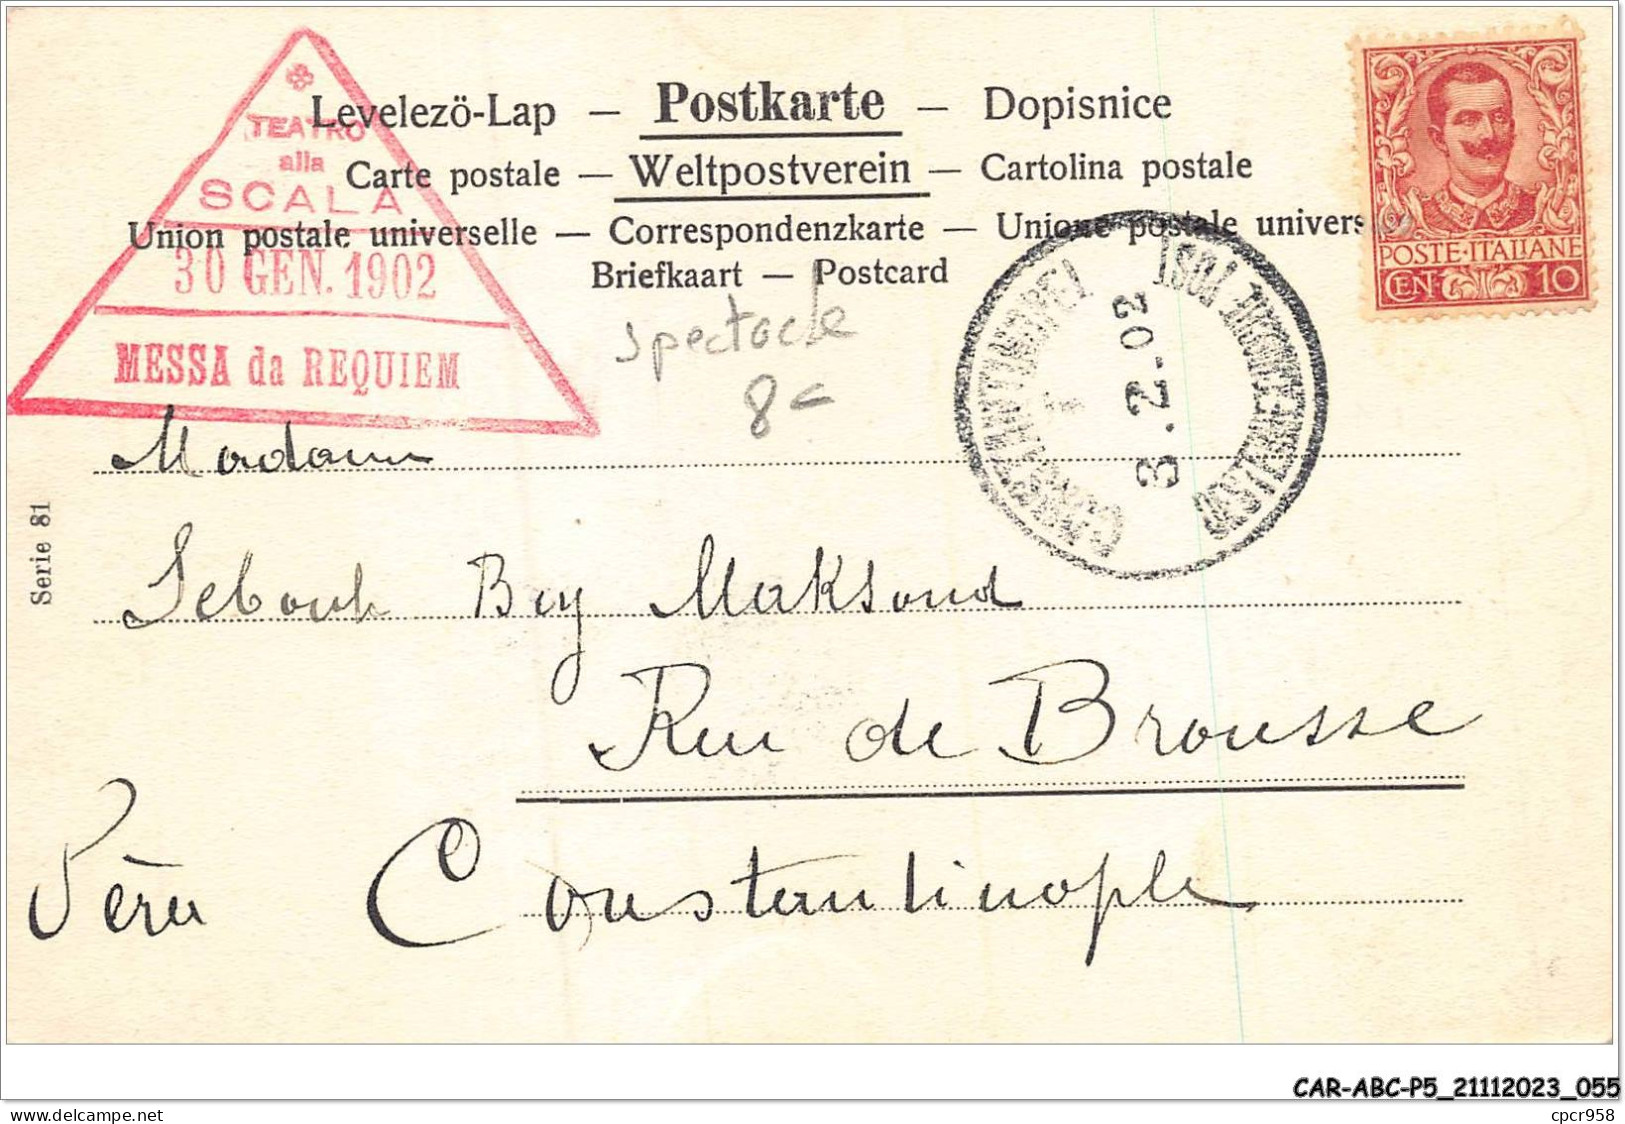 TEATRO
alla
SCALA
30 GEN. 1902
MESSA da REQUIEM
Levelezö-Lap — Postkarte — Dopisnice
Carte postale — Weltpostverein — Cartolina postale
Union postale universelle — Correspondenzkarte — Unione postale univers
Briefkaart — Postcard
POSTE·ITALIANE
CEN· 10
spectacle
8-
3.2.02
Madame
Serie 81
Bey Maksoud
Rue de Brousse
Péra Constantinople
CAR-ABC-P5_21112023_055
www.delcampe.net
cpcr958